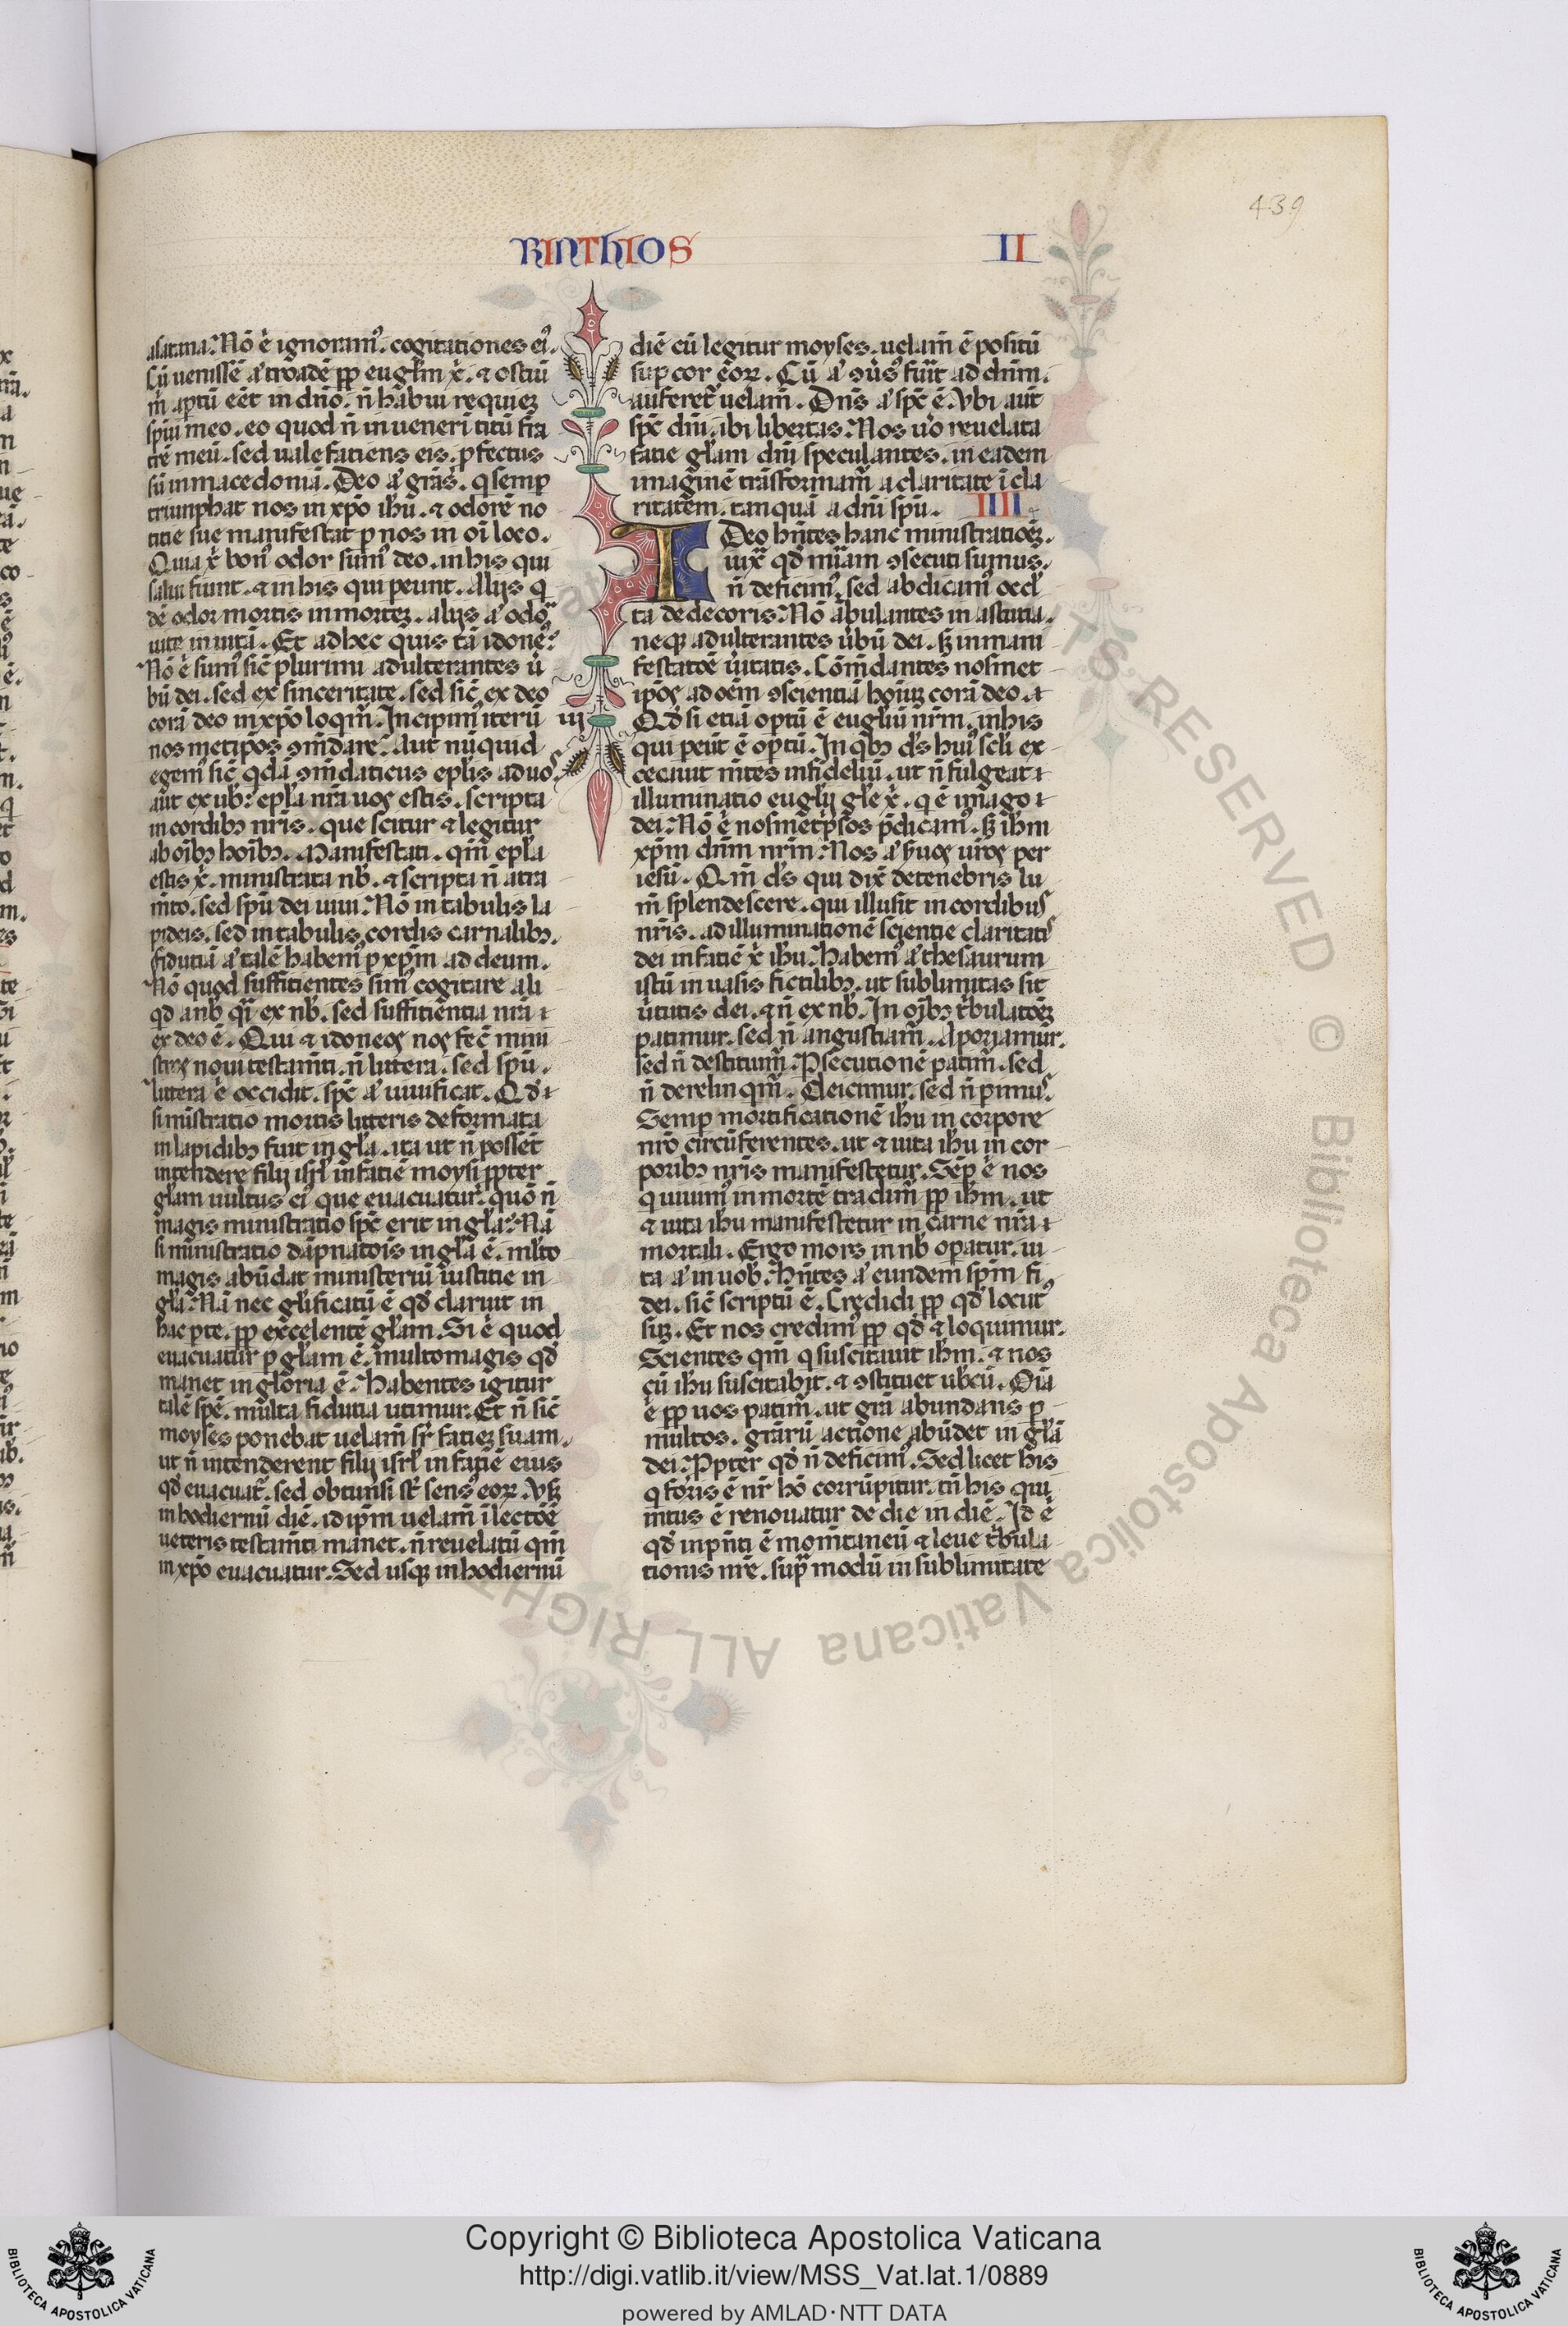 439
RINTHIOS II
asatana. Nō ė ignoramꝰ. cogitationes eiꝰ.
Cū uenissē aͭ troadē ꝓp eugl̄m xͥ. ⁊ ostiū
m̄ aptū eēt in dn̄o. n̄ habui requieꝫ
spiu meo. eo quod n̄ inueneri titū fra
trē meū. sed ualefatiens eis. ꝓfectus
sū in macedoniā. Deo aͭ gr̄as. q semꝑ
triunphat nos in xp̄o ih̄u. ⁊ odorē no
titie sue manifestat ꝑ nos in oī loco.
Quia xͥ bonꝰ odor sumꝰ deo. in his qui
salui fiunt. ⁊ in his qui peunt. Alijs q
dē odor mortis in morteꝫ. alijs aͭ odor
uite in uitā. Et ad hec quis tā idoneꝰ.
Nō ė sumꝰ sic̄ plurimi adulterantes ū
bū dei. sed ex sinceritate. sed sic̄ ex deo
corā deo in xp̄o loqm̄. Incipimꝰ iterū
nosmetip̄os ꝯm̄dare. Aut nūquid
egemꝰ sic̄ qdā ꝯm̄daticus epl̄is ad uos
aut ex ub̄. epl̄a nr̄a uos estis. scripta
in cordibꝫ nr̄is. que scitur ⁊ legitur
ab oībꝫ hoībꝫ. Manifestati. qm̄ epl̄a
estis xͥ. ministrata nb̄. ⁊ scripta n̄ atra
m̄to. sed spū dei uiui. Nō in tabulis la
pideis. sed in tabulis cordis carnalibꝫ.
fidutiā aͭ talē habemꝰ ꝑ xp̄m ad deum.
Nō quod suffitientes simꝰ cogitare ali
qd a nb̄ qͥ ex nb̄. sed suffitientia nr̄a
ex deo ē. Qui ⁊ idoneos nos fec̄ mini
stros noui testam̄ti. n̄ littera. sed spū.
littera ė occidit. spc̄ aͭ uiuificat. Qd̄
si mīstratio mortis litteris deformata
in lapidibꝫ fuit in gl̄a. ita ut n̄ possēt
intendere filij isrl̄ in fatiē moysi ꝓpter
gl̄am uultus eiꝰ que euacuatur. quō n̄
magis ministratio spc̄ erit in gl̄a. Nā
si ministratio dāpnatōis in gl̄a ē. ml̄to
magis abūdat ministeriū iustitie in
gl̄a. Nā nec gl̄ificatū ē qd̄ claruit in
hac ꝑte. ꝓp excelentē gl̄am. Si ė quod
euacuatur ꝑ gl̄am ē. multomagis qd̄
manet in gloria ē. Habentes igitur
talē spē. multa fidutia utimur. Et n̄ sic̄
moyses ponebat uelam̄ sr̄ fatieꝫ suam.
ut n̄ intenderent filij isrl̄ in fatiē eius
qd̄ euacuat̄. sed obtunsi st̄ sensꝰ eoꝝ. Vsqꝫ
in hodiernū diē. id ip̄m uelam̄ ī lectōē
ueteris testam̄ti manet. n̄ reuelatū qm̄
in xp̄o euacuatur. Sed usqꝫ in hodiernū
iij
diē cū legitur moyses. uelam̄ ē positū
suꝑ cor eoꝝ. Cū aͭ ꝯūsꝰ fuīt ad dn̄m.
auferet̄ uelam̄. Dn̄s aͭ spc̄ ē. Vbi aut̄
spc̄ dn̄i. ibi libertas. Nos uͦo reuelata
fatie gl̄am dn̄i speculantes. in eadem
imaginē trāsformam̄ a claritate ī cla
ritatem. tanquā a dn̄i spū. IIII
I Deo hn̄tes hanc ministratiōeꝫ.
iuxͣ qd̄ mīam ꝯsecuti sumus.
n̄ deficimꝰ. sed abdicamꝰ occl̄
ta dedecoris. Nō ābulantes in astutia.
neqꝫ adulterantes ūbū dei. sꝫ in mani
festatōe ūitatis. Com̄dantes nosmet
ip̄os ad oēm ꝯscientiā hoīuꝫ corā deo.
Qd̄ si etiā optū ē eugl̄iū nr̄m. in his
qui peūt ē optū. In qbꝫ d̄s huiꝰ scl̄i ex
cecauit m̄tes infideliū. ut n̄ fulgeat
illuminatio eugl̄ij gl̄e xͥ. q ē imago
dei. Nō ė nosmetip̄sos p̄dicamꝰ. sꝫ ih̄m
xp̄m dn̄m nr̄m. Nos aͭ s̄uos ur̄os per
iesū. Qm̄ d̄s qui dix̄ de tenebris lu
m̄ splendescere. qui illusit in cordibus
nr̄is. ad illuminationē scientie claritatis
dei in fatiē xͥ ih̄u. Habemꝰ aͭ thesaurum
istū in uasis fictilibꝫ. ut sublimitas sit
ūtutis dei. ⁊ n̄ ex nb̄. In oībꝫ tͥbulatōeꝫ
patimur. sed n̄ angustiam̄. Aporiamur.
sed n̄ destituim̄. Ꝑsecutionē patim̄. sed
n̄ derelinqm̄. Deicimur. sed n̄ ꝑimus.
Semꝑ mortificationē ih̄u in corpore
nr̄o circūferentes. ut ⁊ uita ih̄u in cor
poribꝫ nr̄is manifestetur. Sēꝑ ė nos
q uiuimꝰ in mortē tradim̄ ꝓp ih̄m. ut
⁊ uita ih̄u manifestetur in carne nr̄a
mortali. Ergo mors in nb̄ operatur. ui
ta aͭ in uob̄. Hn̄tes aͭ eundem sp̄m fi
dei. sic̄ scriptū ē. Credidi ꝓp qd̄ locutꝰ
suꝫ. Et nos credimꝰ ꝓp qd̄ ⁊ loquimur.
Scientes qm̄ q suscitauit ih̄m. ⁊ nos
cū ih̄u suscitabit. ⁊ ꝯstituet ub̄cū. Oīa
ė ꝓp uos patim̄. ut gr̄a abundans ꝑ
multos. gr̄arū actione abūdet in gl̄ā
dei. Ꝓpter qd̄ n̄ deficimꝰ. Sed licet his
q foris ē nr̄ hō corrūpitur. tn̄ his qui
intus ē renouatur de die in diē. Id ė
qd̄ in p̄n̄ti ē mom̄taneū ⁊ leue tͥbula
tionis nr̄e. supͣ modū in sublimitate
ALL RIGHTS RESERVED © Biblioteca Apostolica Vaticana
BIBLIOTECA APOSTOLICA VATICANA
Copyright © Biblioteca Apostolica Vaticana
http://digi.vatlib.it/view/MSS_Vat.lat.1/0889
powered by AMLAD·NTT DATA
BIBLIOTECA APOSTOLICA VATICANA